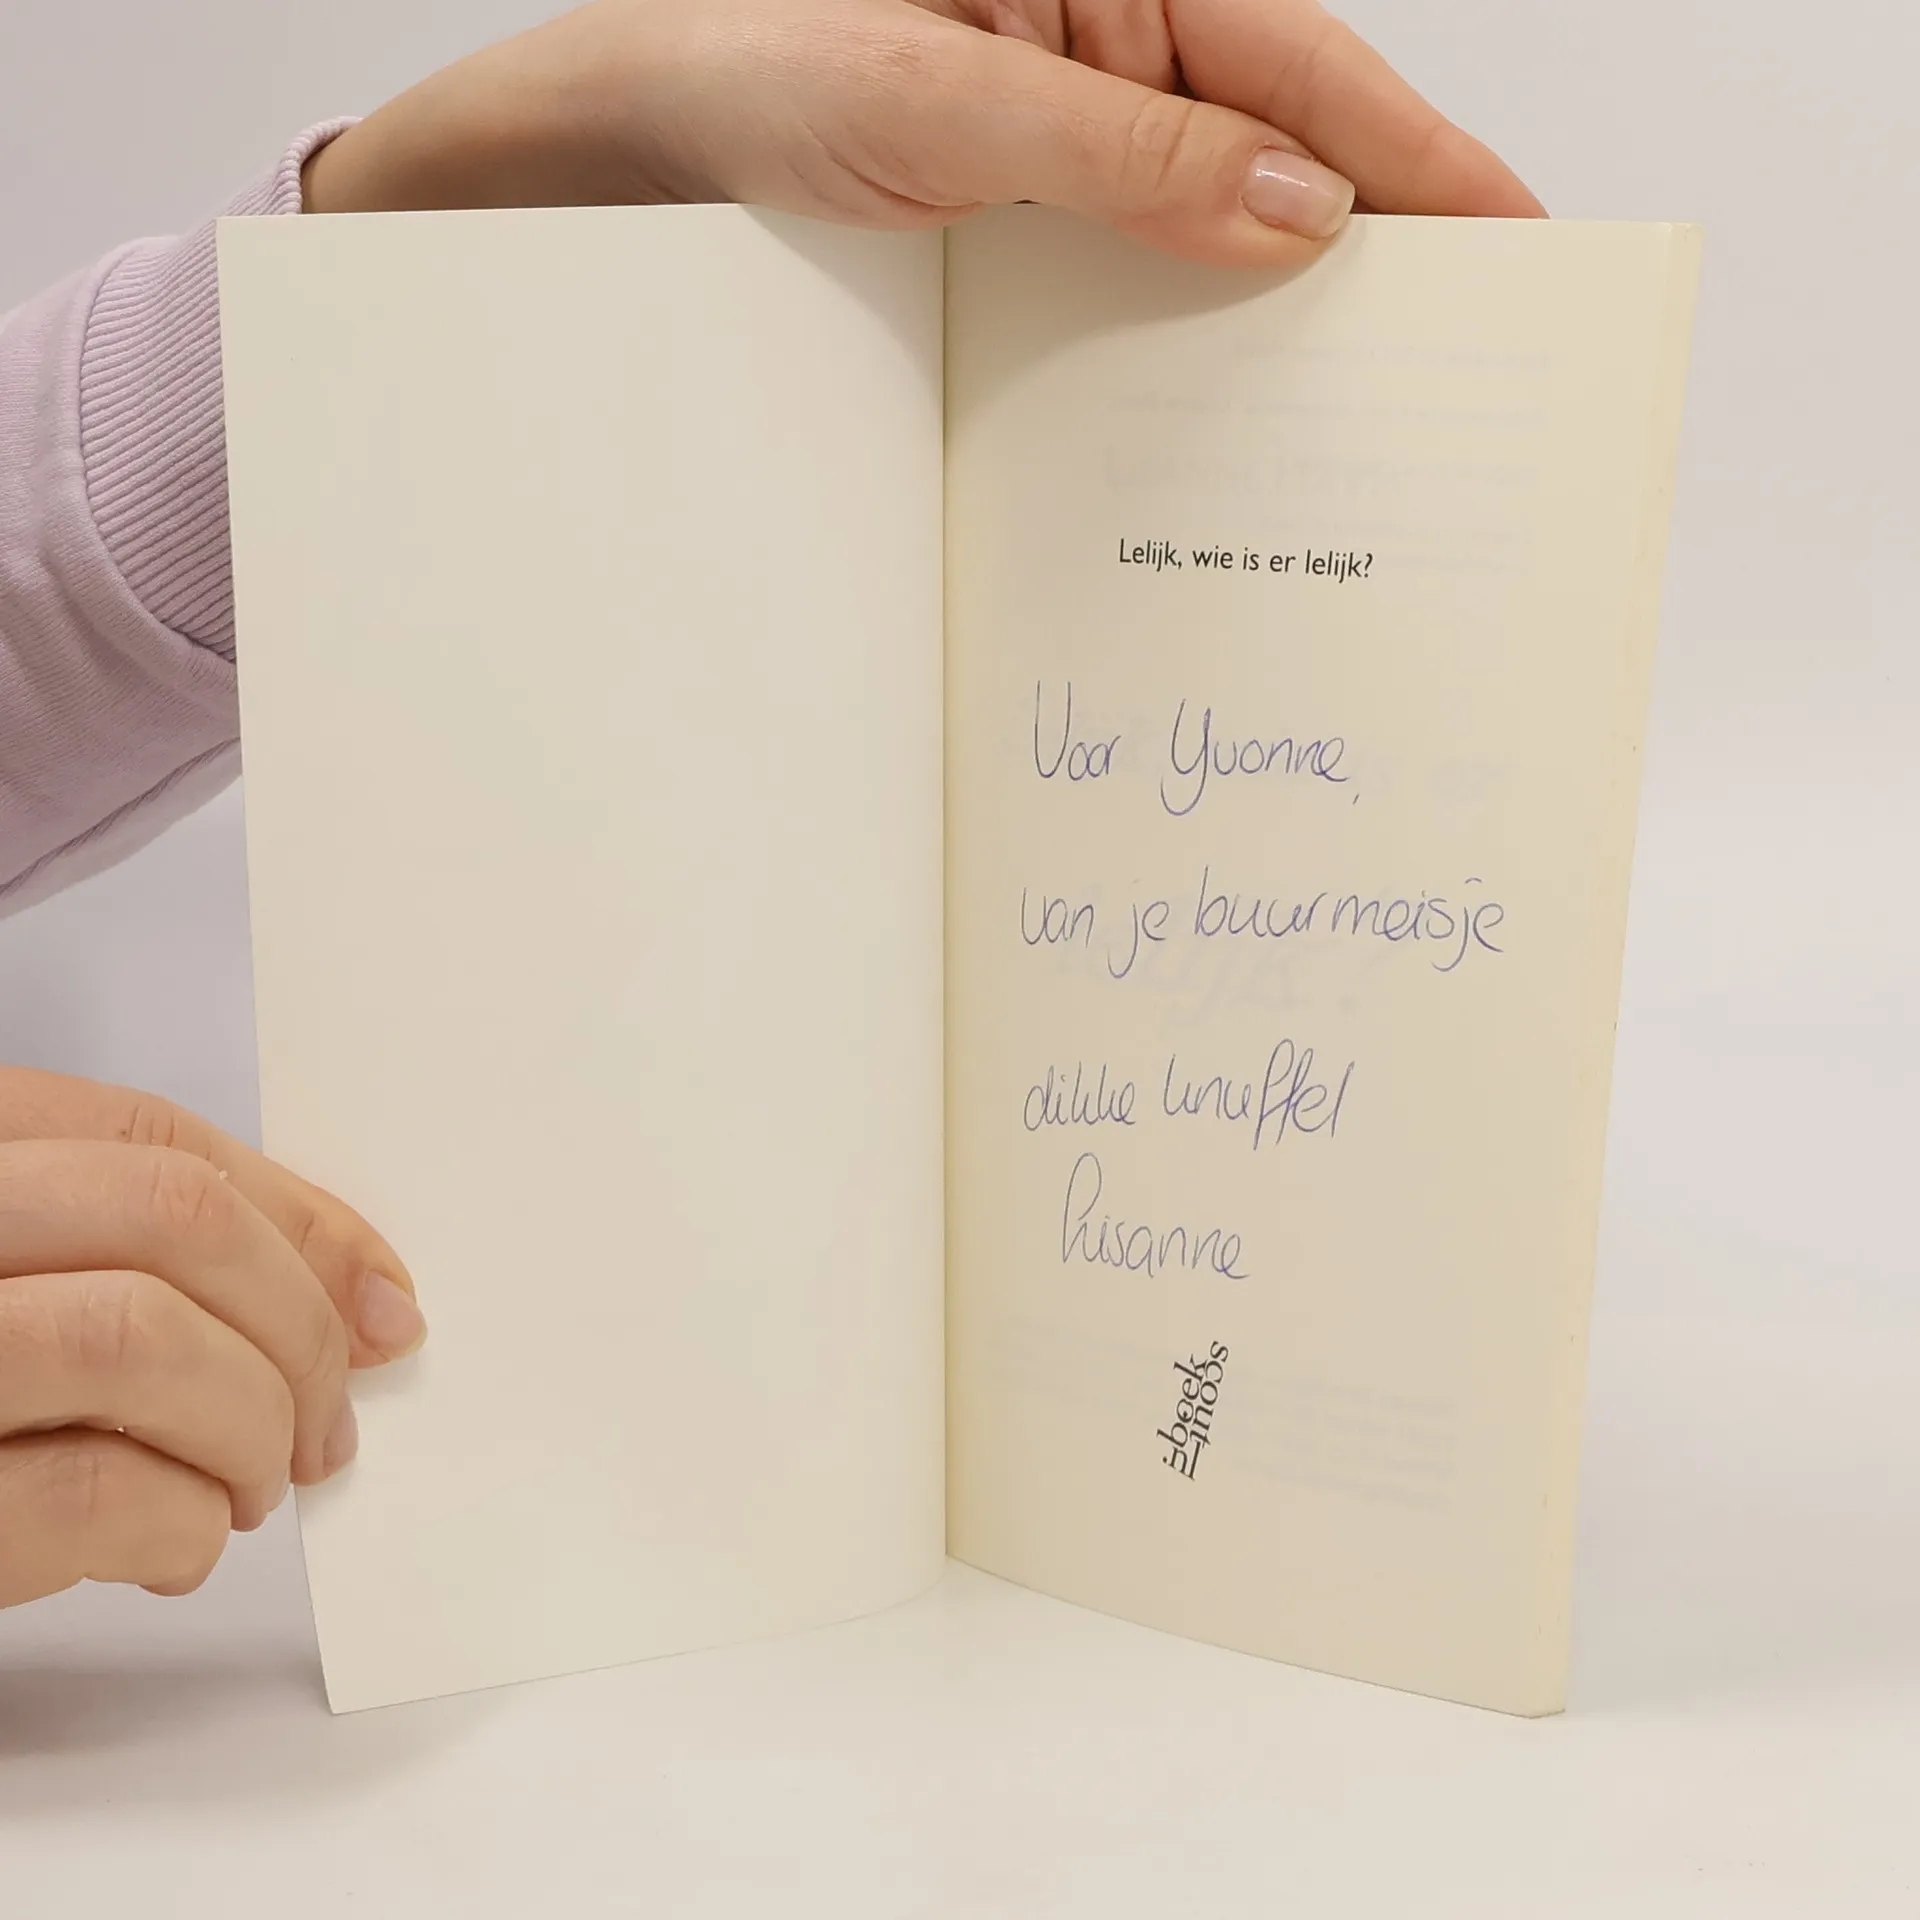 Lelijk, wie is er lelijk?
Voor Yvonne,
van je buurmeisje
dikke knuffel
Lisanne
boek
scout